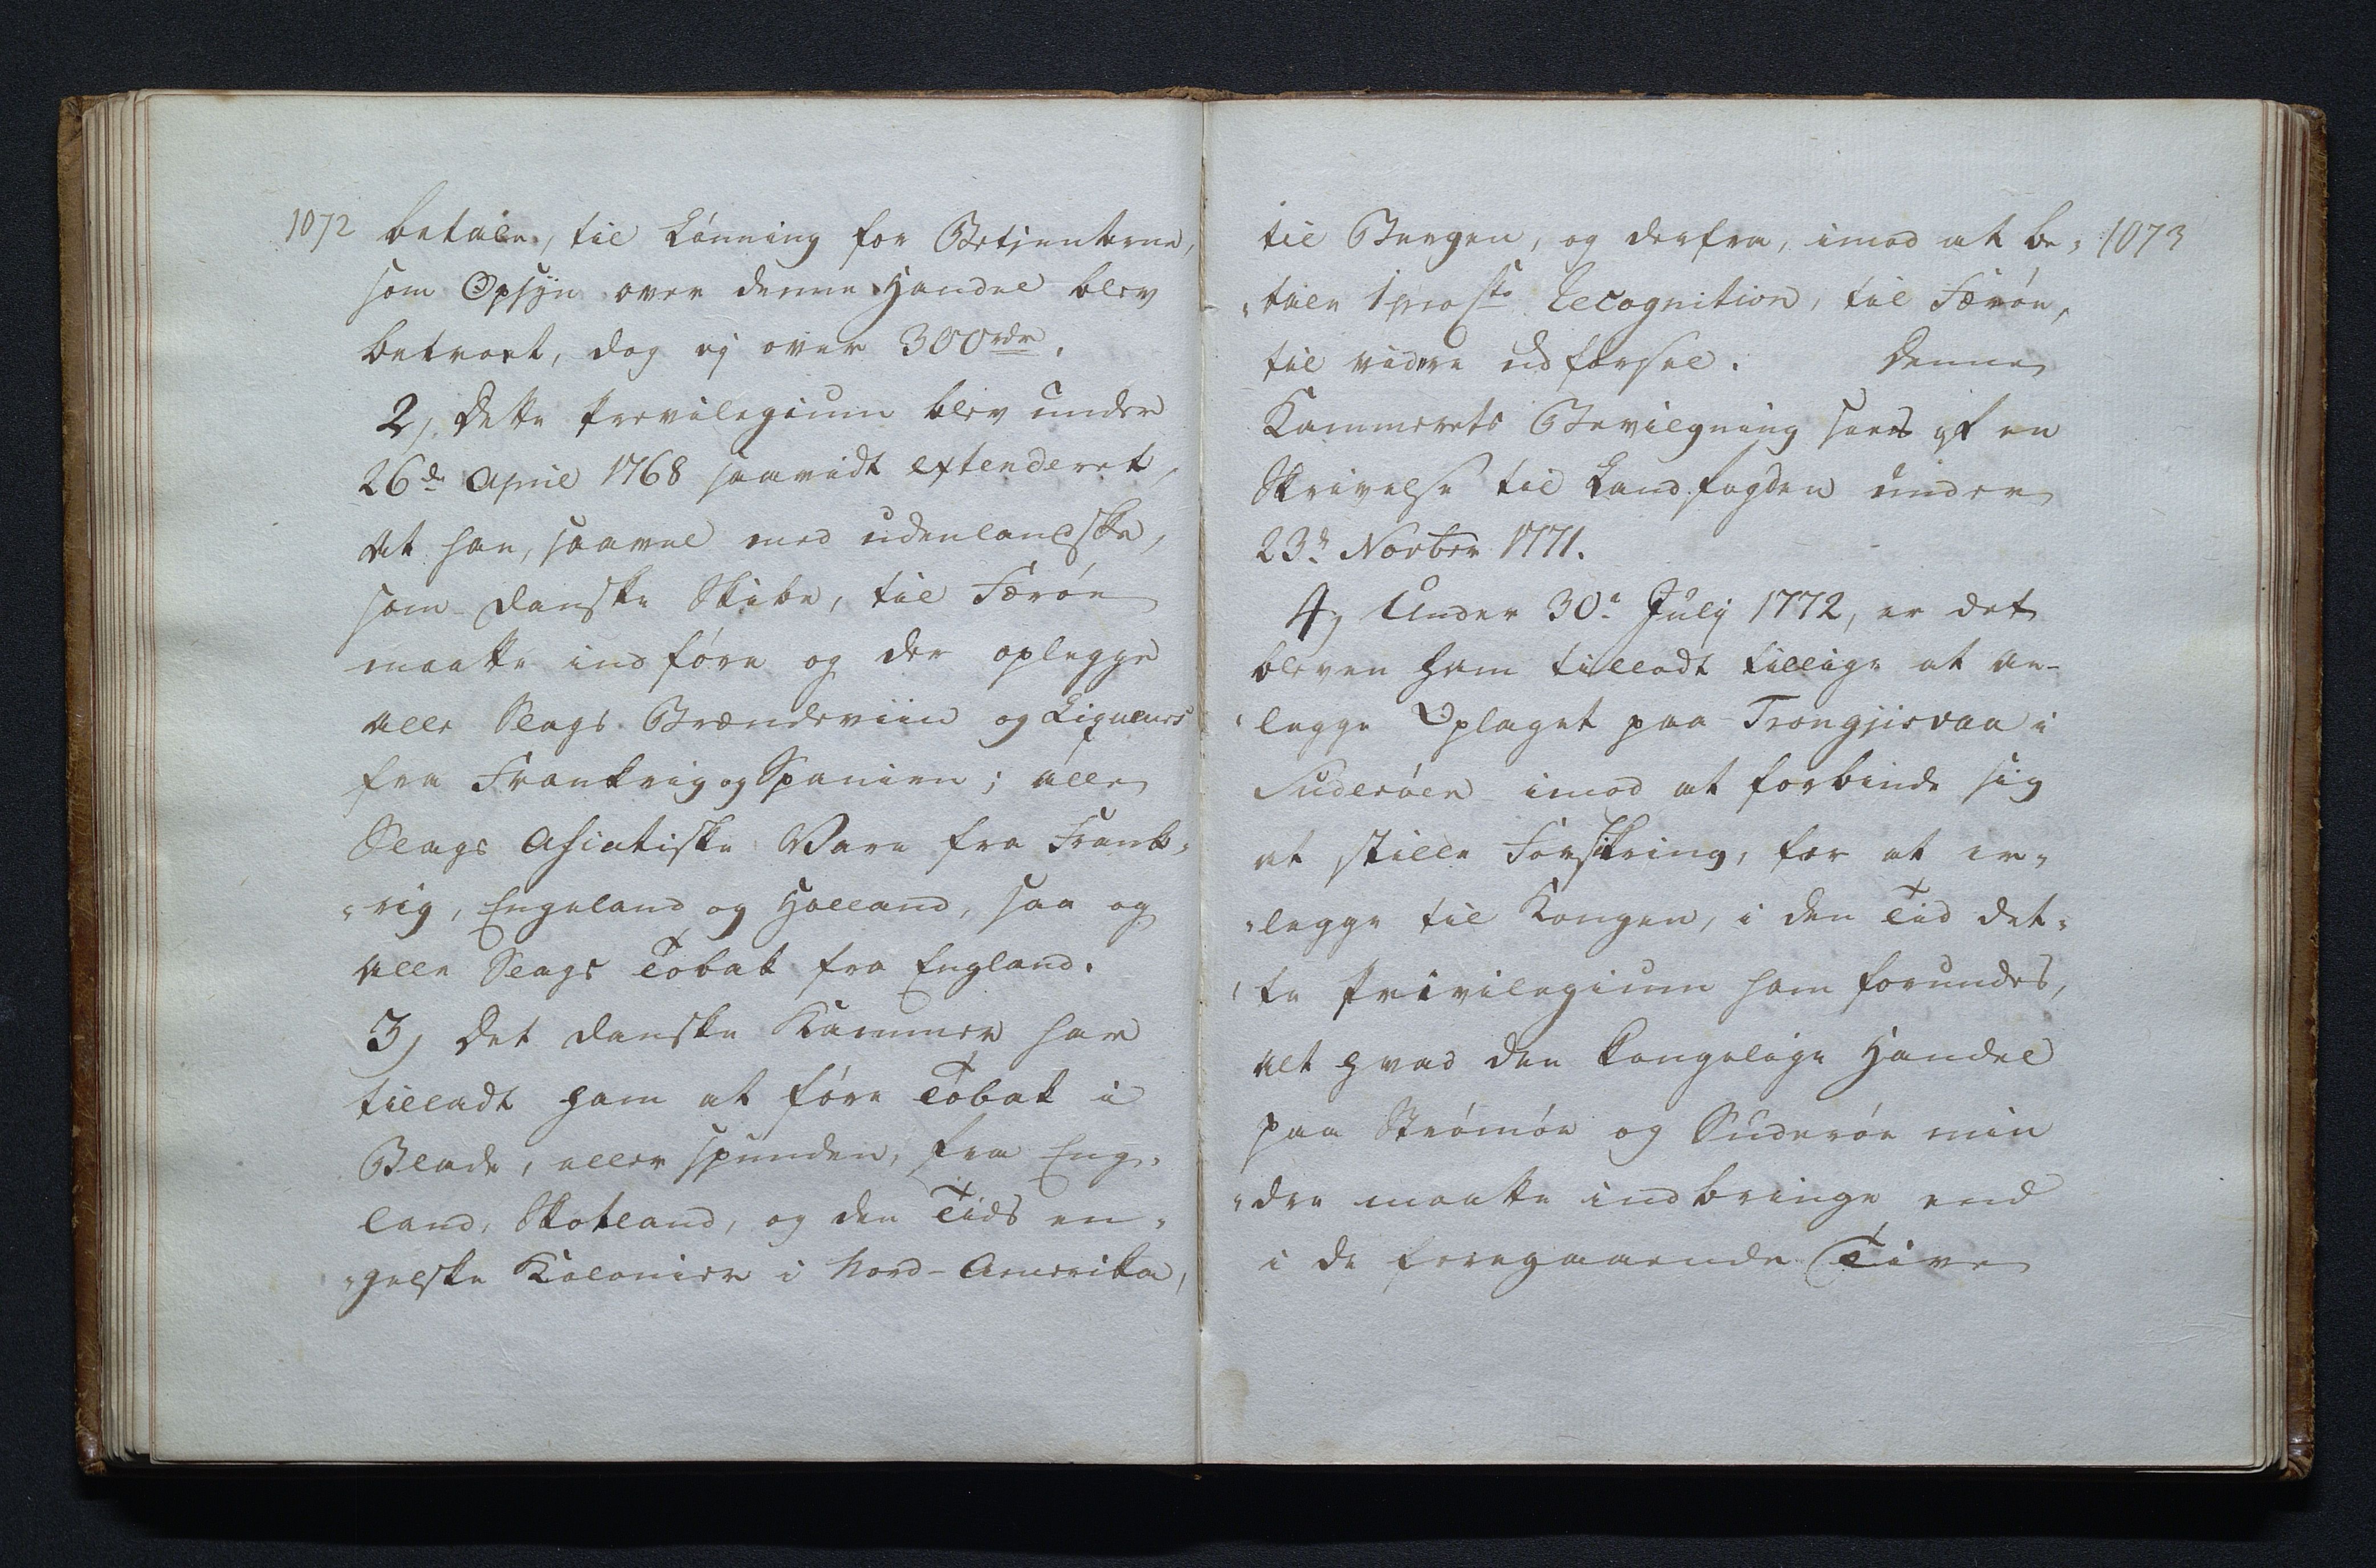 1072
betale, til Lönning for Betjenterne,
som Opsÿn over denne Handel blev
betroet, dog ej over 300 rdr.
2, Dette Previlegium blev under
26de April 1768 saavidt extenderet,
at han, saavel med udenlandske,
som danske Skibe, til Færöe
maatte indföre og der oplegge
alle Slags Brændeviin og Liqueurs
fra Frankrig og Spanien; alle
Slags Asiatiske Vare fra Frank-
-rig, Engeland og Holland, saa og
alle Slags Tobak fra England.
3, Det danske Kammer har
tilladt ham at före Tobak i
Blade, eller spunden, fra Eng-
land, Skotland, og den Tids en-
-gelske Kolonier i Nord-Amerika,
1073
til Bergen, og derfra, imod at be-
-tale 1 pro Cto Recognition, til Færöe,
til videre udförsel. Denne
Kammerets Bevilgning sees af en
Skrivelse til Landfogden under
23de Novbr 1771.
4, Under 30e July 1772, er det
bleven ham tilladt tillige at an-
-legge Oplaget paa Trongjisvaa i
Suderöen imod at forbinde sig
at stille Forsikring, for at er-
-legge til Kongen, i den Tid det-
-te Privilegium ham forundes,
alt hvad den kongelige Handel
paa Strömöe og Suderöe min
-dre maatte indbringe end
i de foregaaende Tive